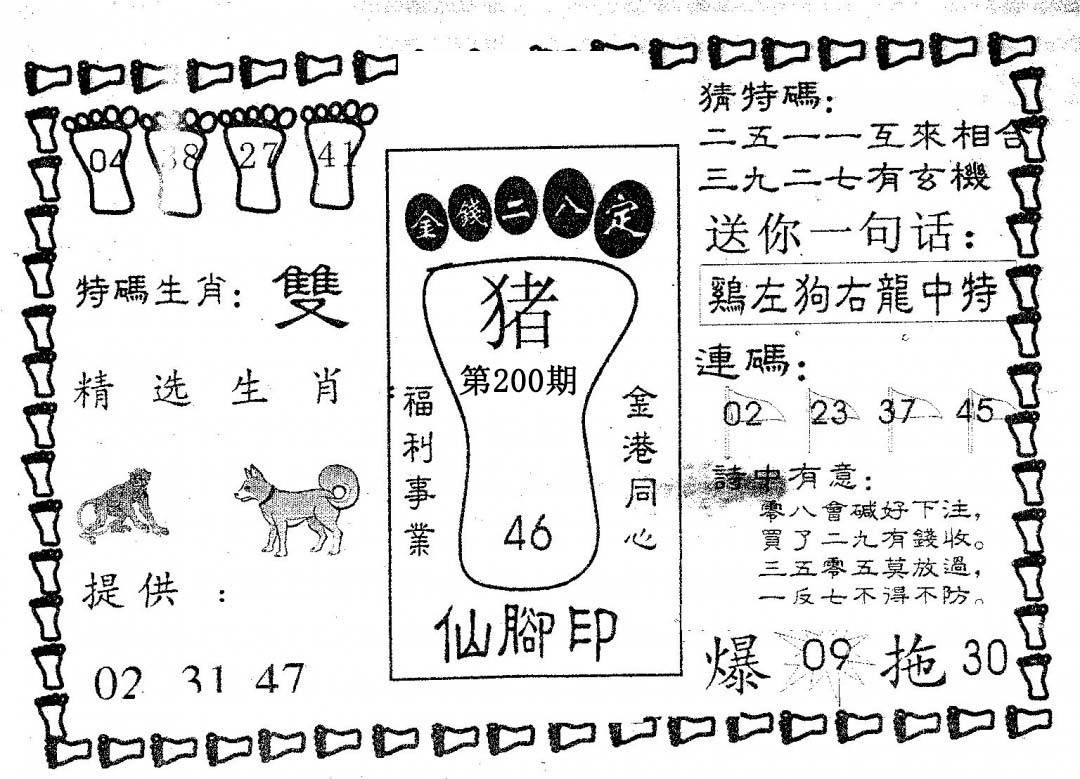 04 38 27 41
特碼生肖：雙
精选生肖
提供：
02 31 47
金錢二八定
猪
第200期
福利事業
金港同心
46
仙腳印
猜特碼：
二五一一互來相合
三九二七有玄機
送你一句话：
鷄左狗右龍中特
連碼：
02 23 37 45
詩中有意：
零八會碱好下注，
買了二九有錢收。
三五零五莫放過，
一反七不得不防。
爆 09 拖 30